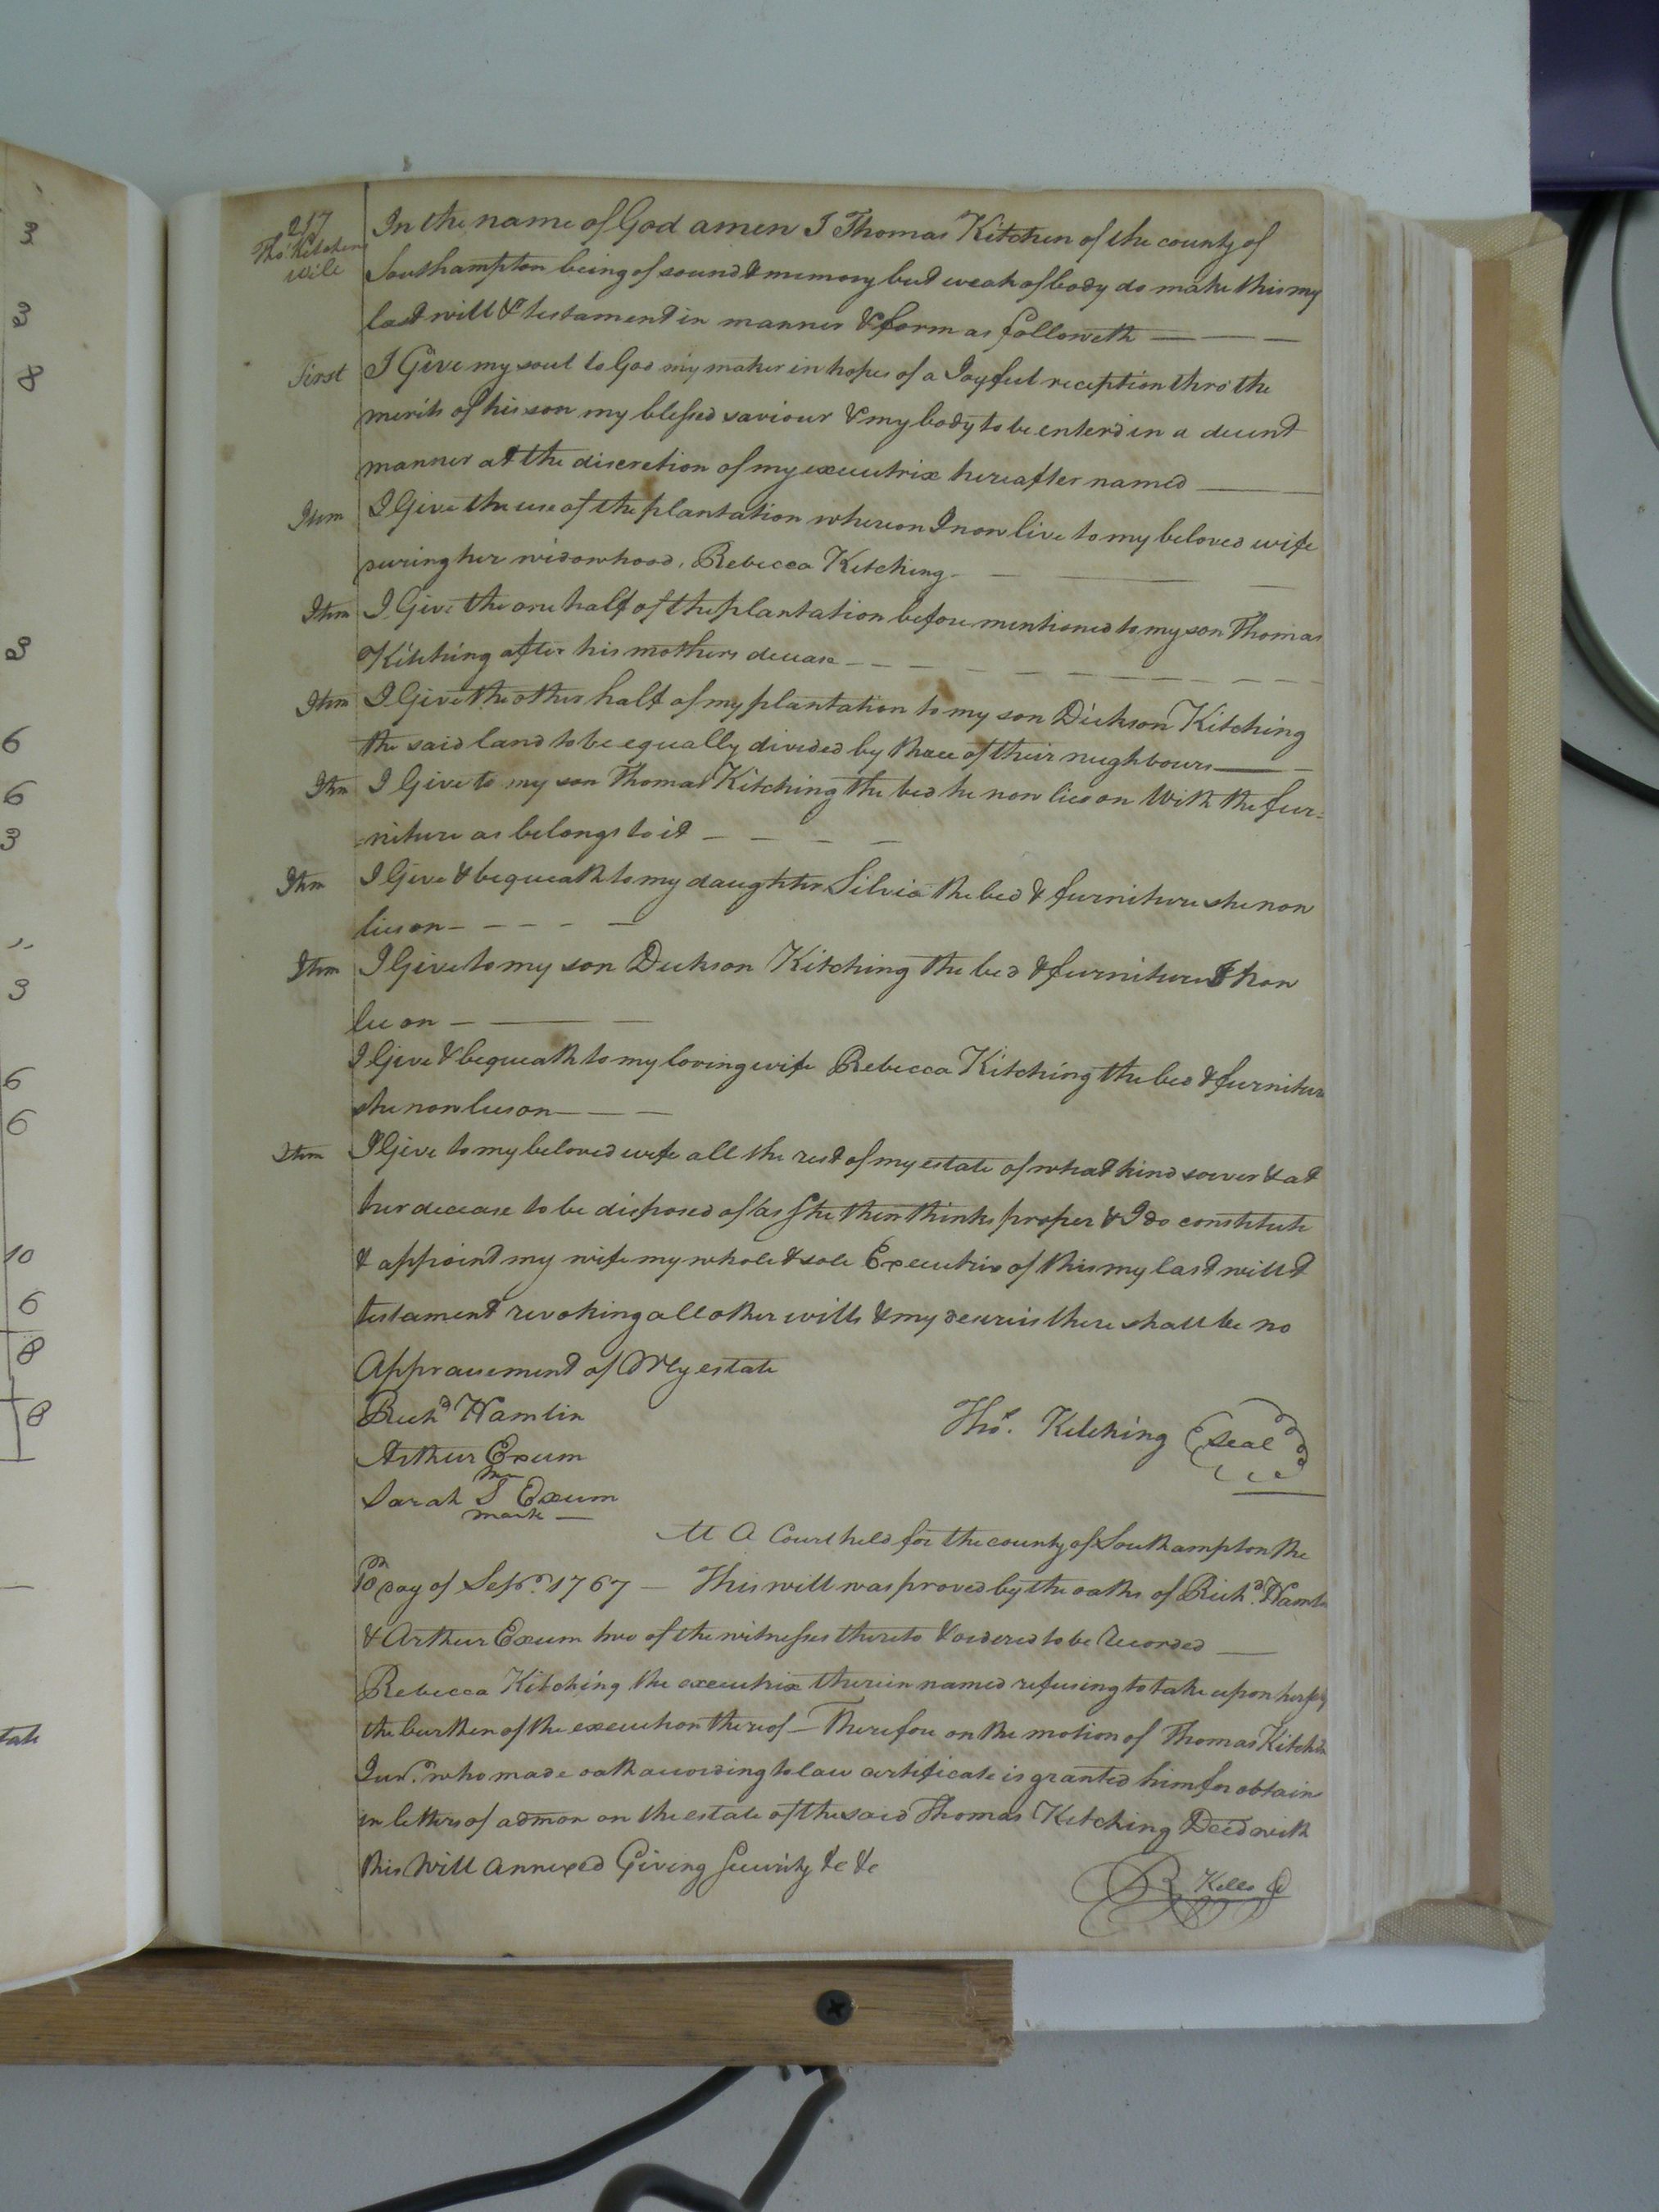 217
Thos. Kitchens
Will
In the name of God amen I Thomas Kitchen of the county of
Southampton being of sound & memory but weak of body do make this my
last will & testament in manner & form as followeth
First I Give my soul to God my maker in hopes of a Joyful reception thro' the
merits of his son my blessed saviour & my body to be enterd in a decent
manner at the discretion of my executrix hereafter named
Item I Give the use of the plantation whereon I now live to my beloved wife
during her widowhood, Rebecca Kitching
Item I Give the one half of the plantation before mentioned to my son Thomas
Kitching after his mothers decease
Item I Give the other half of my plantation to my son Dickson Kitching
the said land to be equally divided by three of their neighbours
Item I Give to my son Thomas Kitching the bed he now lies on With the fur=
=niture as belongs to it
Item I Give & bequeath to my daughter Silvia the bed & furniture she now
lies on
Item I Give to my son Dickson Kitching the bed & furniture I now
lie on
I Give & bequeath to my loving wife Rebecca Kitching the bed & furniture
she now lies on
Item I Give to my beloved wife all the rest of my estate of what kind soever & at
her decease to be disposed of as she then thinks proper & I do constitute
& appoint my wife my whole & sole Executrix of this my last will &
testament revoking all other wills & my desire is there shall be no
Appraisement of My estate
Richd Hamlin
Thos. Kitching Seal
Arthur Exum
Sarah S Exum
mark
At A Court held for the county of Southampton the
10th day of Sepr. 1767 — This will was proved by the oaths of Richd. Hamlin
& Arthur Exum two of the witnesses thereto & ordered to be Recorded
Rebecca Kitching the executrix therein named refusing to take upon herself
the burthen of the execution thereof — Therefore on the motion of Thomas Kitchin
Junr. who made oath according to law certificate is granted him for obtain
in letters of admon on the estate of the said Thomas Kitching Decd with
this Will annexed Giving Security &c &c
R Kello
3
2
8
3
6
6
3
3
6
6
10
6
8
8
tate